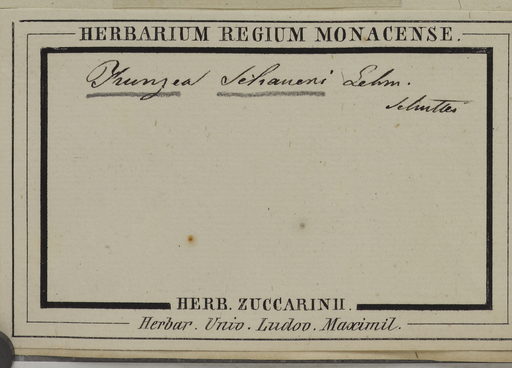 HERBARIUM REGIUM MONACENSE.
Kunzea Schaueri Lehm.
Schuttes
HERB. ZUCCARINII.
Herbar. Univ. Ludov. Maximil.